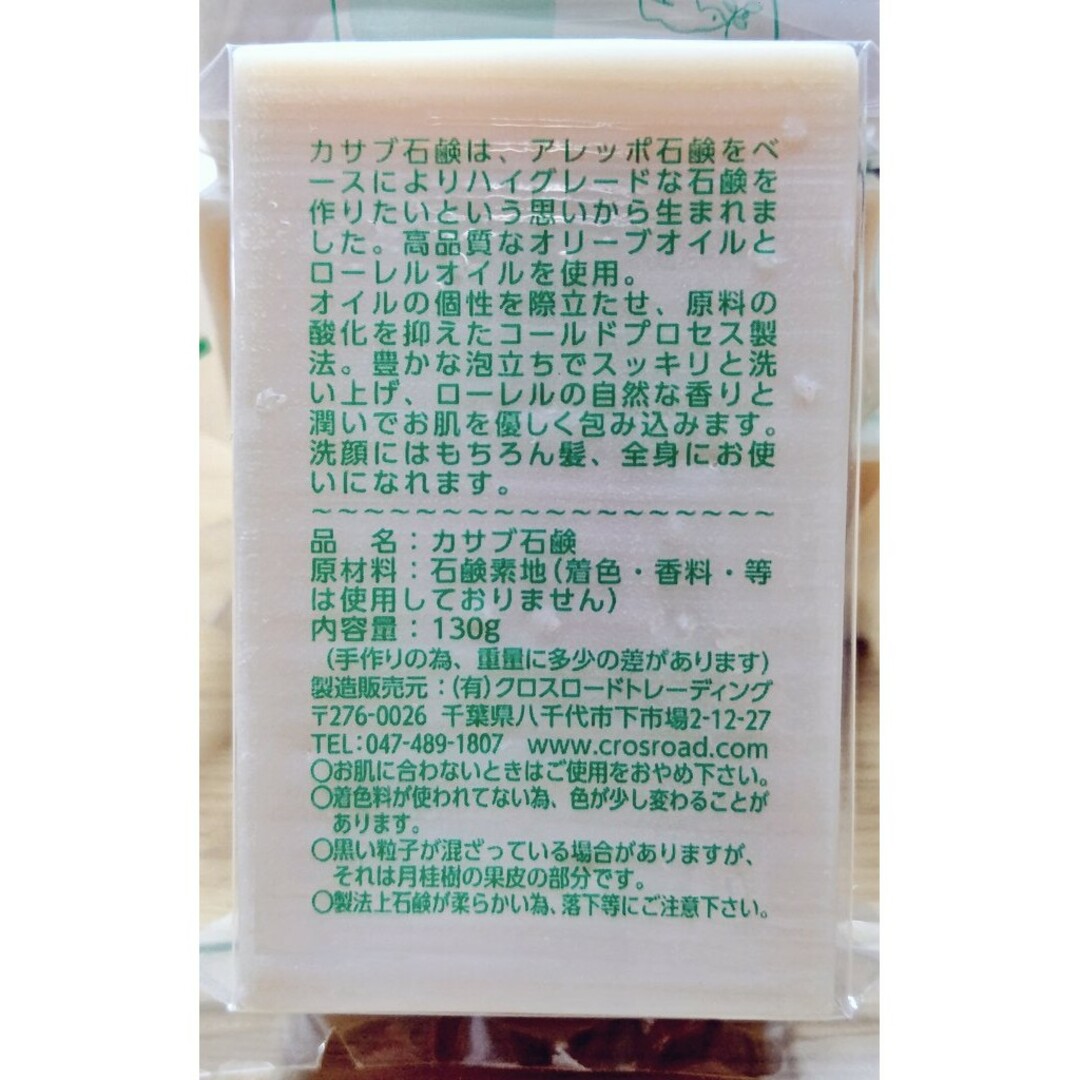 カサブ石鹸は、アレッポ石鹸をベ
ースによりハイグレードな石鹸を
作りたいという思いから生まれま
した。高品質なオリーブオイルと
ローレルオイルを使用。
オイルの個性を際立たせ、原料の
酸化を抑えたコールドプロセス製
法。豊かな泡立ちでスッキリと洗
い上げ、ローレルの自然な香りと
潤いでお肌を優しく包み込みます。
洗顔にはもちろん髪、全身にお使
いになれます。
～～～～～～～～～～～～～～～～～～
品　名：カサブ石鹸
原材料：石鹸素地（着色・香料・等
は使用しておりません）
内容量：130g
（手作りの為、重量に多少の差があります）
製造販売元：（有）クロスロードトレーディング
〒276-0026 千葉県八千代市下市場2-12-27
TEL：047-489-1807 www.crosroad.com
〇お肌に合わないときはご使用をおやめ下さい。
〇着色料が使われてない為、色が少し変わることが
あります。
〇黒い粒子が混ざっている場合がありますが、
それは月桂樹の果皮の部分です。
〇製法上石鹸が柔らかい為、落下等にご注意下さい。